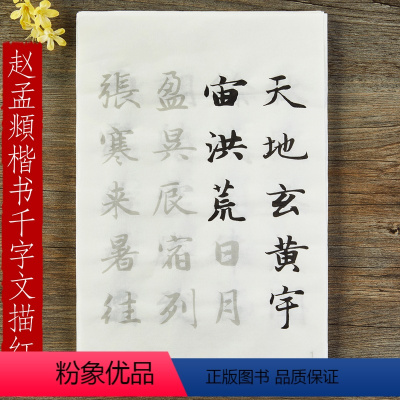 赵孟頫楷书千字文描红
天地玄黄宇
宙洪荒日月
盈昃辰宿列
張寒来暑往
粉象优品
正品低价 品质保障